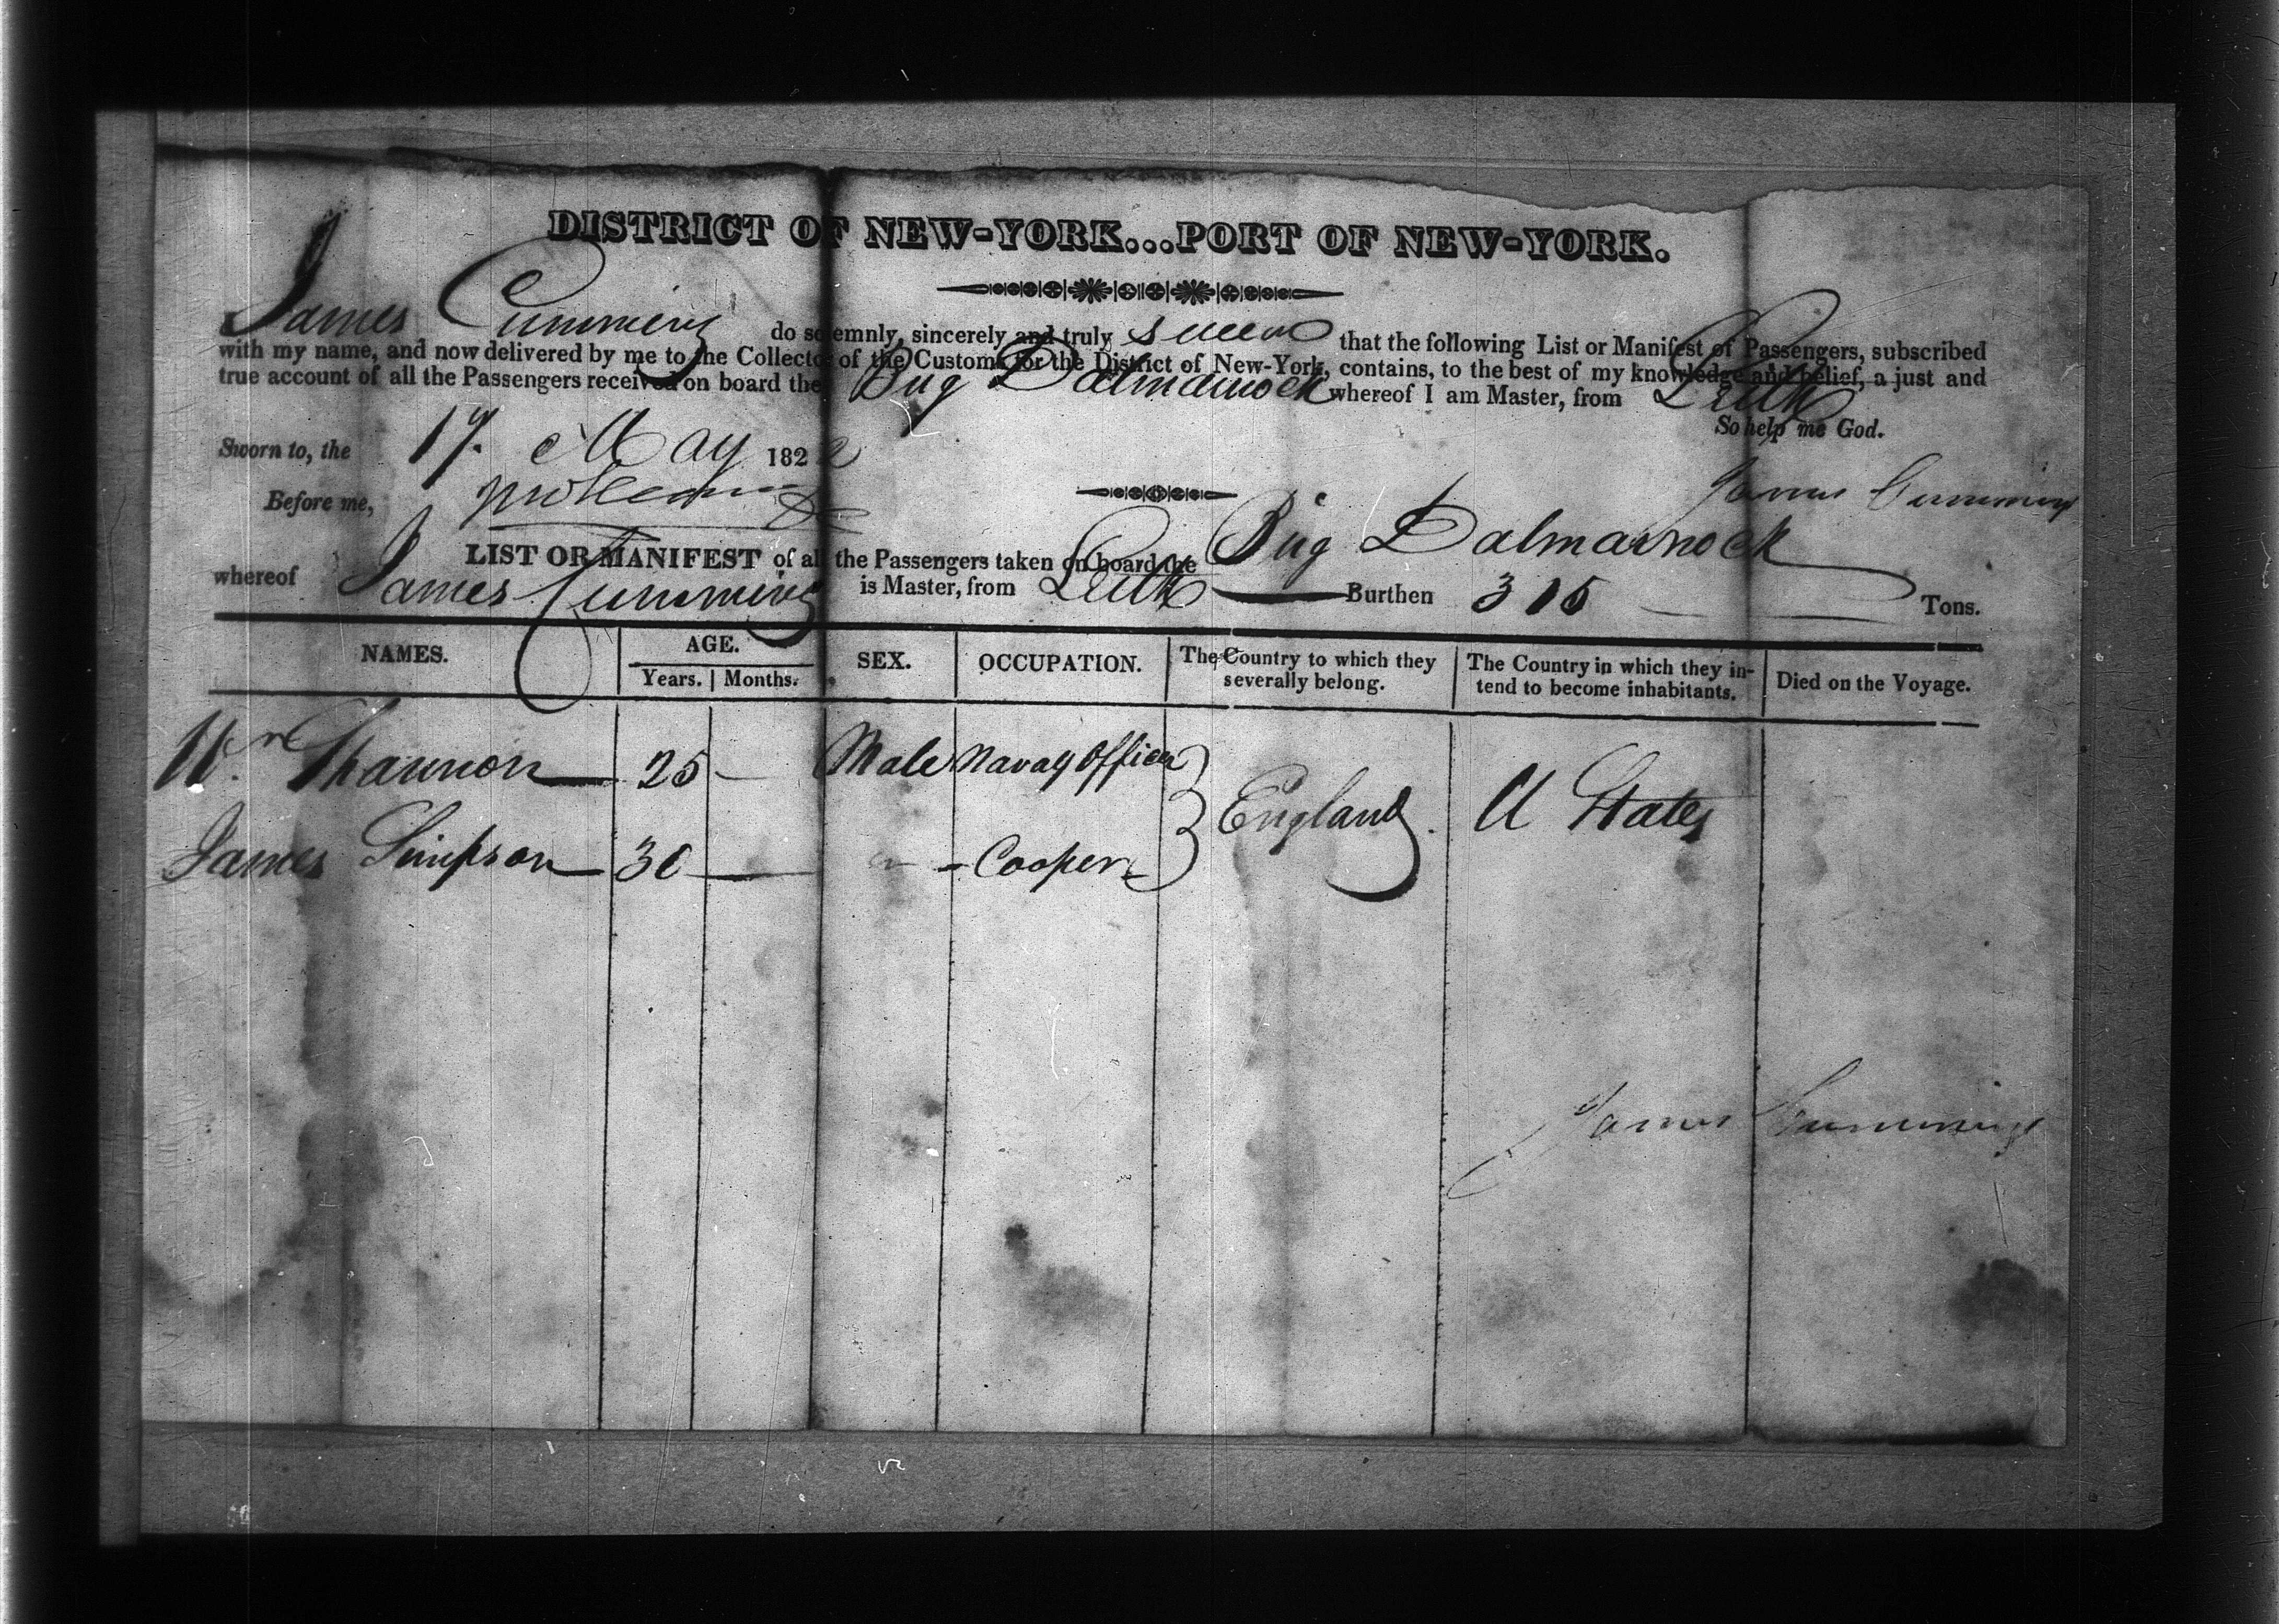 DISTRICT OF NEW-YORK...PORT OF NEW-YORK.
James Cumming do solemnly, sincerely and truly swear that the following List or Manifest of Passengers, subscribed
with my name, and now delivered by me to the Collector of the Customs for the District of New-York, contains, to the best of my knowledge and belief, a just and
true account of all the Passengers received on board the Brig Dalmarnock whereof I am Master, from Leith
So help me God.
Sworn to, the 17. May 1822
James Cumming
Before me,
LIST OR MANIFEST of all the Passengers taken on board the Brig Dalmarnock
whereof James Cumming is Master, from Leith Burthen 315 Tons.
NAMES. AGE. SEX. OCCUPATION. The Country to which they severally belong. The Country in which they in- tend to become inhabitants. Died on the Voyage.
Years. Months.
Wm Shannon 25 Male Navay Officer
England. U States
James Simpson 30 Cooper
James Cumming